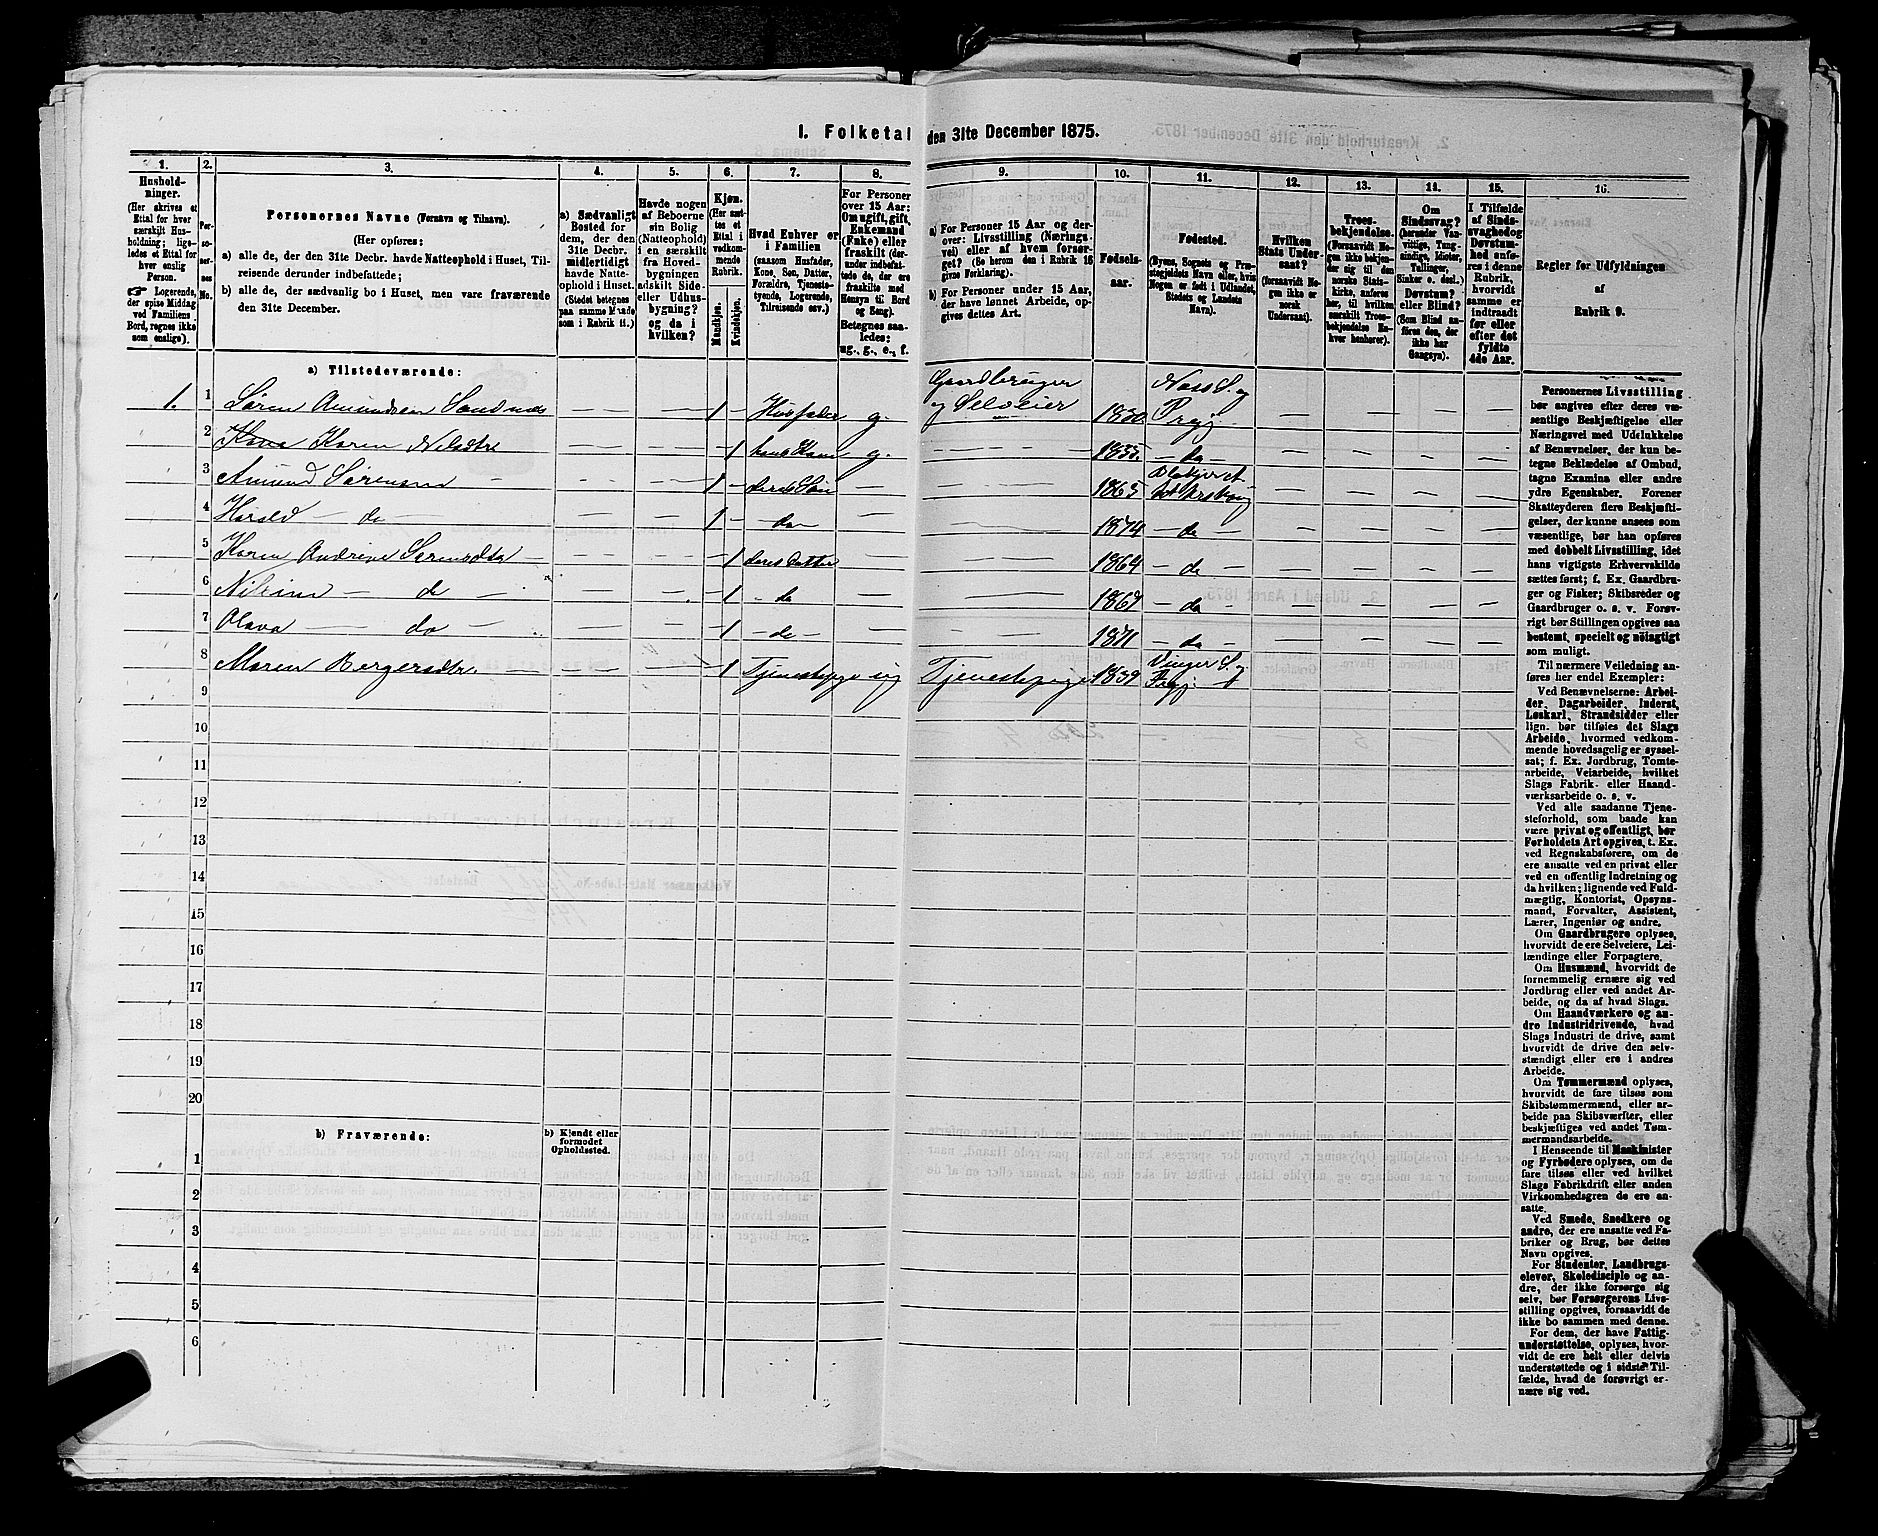 1. Folketal den 31te December 1875.
1. 2. 3. 4. 5. 6. 7. 8. 9. 10. 11. 12. 13. 14. 15. 16.
Hushold-
ninger.
(Her skrives et
Ettal for hver
særskilt Hus-
holdning; lige-
ledes et Ettal for
hver enslig
Person.
☞ Logerende,
der spise Middag
ved Familiens
Bord, regnes ikke
som enslige).
Per-
so-
ner-
nes
No.
Personernes Navne (Fornavn og Tilnavn).
(Her opføres:
a) alle de, der den 31te Decbr. havde Natteophold i Huset, Til-
reisende derunder indbefattede;
b) alle de, der sædvanlig bo i Huset, men vare fraværende
den 31te December.
a) Sædvanligt
Bosted for
dem, der den
31te Decbr.
midlertidigt
havde Natte-
ophold i Huset.
(Stedet betegnes
paa samme Maade
som i Rubrik 11.)
Havde nogen
af Beboerne
sin Bolig
(Natteophold)
i en særskilt
fra Hoved-
bygningen
adskilt Side-
eller Udhus-
bygning?
og da i
hvilken?
Kjøn.
(Her sæt-
tes et
Ettal i
vedkom-
mende
Rubrik.
Mandkjøn.
Kvindekjøn.
Hvad Enhver er
i Familien
(saasom Husfader,
Kone, Søn, Datter,
Forældre, Tjeneste-
tyende, Logerende,
Tilreisende osv.)
For Personer
over 15 Aar:
Om ugift, gift,
Enkemand
(Enke) eller
fraskilt (der-
under indbefat-
tede de, der ere
fraskilte med
Hensyn til Bord
og Seng).
Betegnes saa-
ledes:
ug., g., e., f.
a) For Personer 15 Aar og der-
over: Livsstilling (Nærings-
vei) eller af hvem forsør-
get? (Se herom den i Rubrik 16
givne Forklaring).
b) For Personer under 15 Aar,
der have lønnet Arbeide, op-
gives dettes Art.
Fødsels-
aar.
Fødested.
(Byens, Sognets og Præ-
stegjeldets Navn eller, hvis
Nogen er født i Udlandet,
Stedets og Landets
Navn).
Hvilken
Stats Under-
saat?
(forsaavidt No-
gen ikke er
norsk
Undersaat).
Troes-
bekjendelse.
(Forsaavidt No-
gen ikke bekjen-
der sig til den
norske Stats-
kirke, anføres
her, til hvilken
særskilt Troes-
bekjendelse En-
hver henhører).
Om
Sindssvag?
(herunder Van-
vittige, Tung-
sindige, Idioter,
Tullinger,
Sinker o. desl.)
Døvstum?
eller Blind?
(Som Blind an-
føres den, der
ikke har
Gangsyn).
I Tilfælde
af Sinds-
svaghed og
Døvstum-
hed anfø-
res i denne
Rubrik,
hvorvidt
samme er
indtraadt
før eller
efter det
fyldte
4de Aar.
Regler for Udfyldningen
af
Rubrik 9.
a) Tilstedeværende:
1. 1 Søren Amundsen Sandnæs — — — 1 — Husfader g. Gaardbruger og Selveier 1830 Næss S. og Prgj. — — — —
2 Karen Nilsdtr — 1 hans Kone g. 1833 — do — — — — —
3 Amund Sørensen — — — 1 — deres Søn — 1863 Blakjer — — — —
4 Harald — do — — — 1 — do — — 1874 — do — — — —
5 Karen Andrine Sørensdtr — — — — 1 deres Datter — 1864 — do — — — — —
6 Nilsine — do — — — — 1 — do — 1867 — do — — — — —
7 Olava — do — — — — 1 — do — — 1871 — do — — — — —
8 Maren Bergersdtr. — — — — 1 Tjenestepige ug Tjenestepige 1839 Vinger S. og Prgj. — — — —
9
10
11
12
13
14
15
16
17
18
19
20
b) Fraværende:
b) Kjendt eller
formodet
Opholdssted.
1
2
3
4
5
6
Personernes Livsstilling
bør angives efter deres væ-
sentlige Beskjæftigelse eller
Næringsvei med Udelukkelse
af Benævnelser, der kun be-
tegne Beklædelse af Ombud,
tagne Examina eller andre
ydre Egenskaber. Forener
Skatteyderen flere Beskjæfti-
gelser, der kunne ansees som
væsentlige, bør han opføres
med dobbelt Livsstilling, idet
hans vigtigste Erhvervskilde
sættes først; f. Ex. Gaardbru-
ger og Fisker; Skibsreder og
Gaardbruger o. s. v. Forøv-
rigt bør Stillingen opgives saa
bestemt, specielt og nøiagtigt
som muligt.
Til nærmere Veiledning an-
føres her endel Exempler:
Ved Benævnelserne: Arbei-
der, Dagarbeider, Inderst,
Løskarl, Strandsidder eller
lign. bør tilføies det Slags
Arbeide, hvormed vedkom-
mende hovedsagelig er syssel-
sat; f. Ex. Jordbrug, Tomte-
arbeide, Veiarbeide, hvilket
Slags Fabrik- eller Haand-
værksarbeide o. s. v.
Ved alle saadanne Tjene-
steforhold, som baade kan
være privat og offentligt, bør
Forholdets Art opgives, t. Ex.
ved Regnskabsførere, om de
ere ansatte ved en privat eller
ved en offentlig Indretning og
da hvilken; lignende ved Fuld-
mægtig, Kontorist, Opsyns-
mand, Forvalter, Assistent,
Lærer, Ingeniør og andre.
Om Gaardbrugere oplyses,
hvorvidt de ere Selveiere, Lei-
lændinge eller Forpagtere.
Om Husmænd, hvorvidt de
fornemmelig ernære sig ved
Jordbrug eller ved andet Ar-
beide, og da af hvad Slags.
Om Haandværkere og an-
dre Industridrivende, hvad
Slags Industri de drive, samt
hvorvidt de drive den selv-
stændigt eller ere i andres
Arbeide.
Om Tømmermænd oplyses,
hvorvidt de fare tilsøs som
Skibstømmermænd, eller ar-
beide paa Skibsværfter, eller
beskjæftiges ved andet Tøm-
mermandsarbeide.
I Henseende til Maskinister
og Fyrbødere oplyses, om de
fare tilsøs eller ved hvilket
Slags Fabrikdrift eller anden
Virksomhedsgren de ere an-
satte.
Ved Smede, Snedkere og
andre, der ere ansatte ved Fa-
briker og Brug, bør dettes
Navn opgives.
For Studenter, Landbrugs-
elever, Skoledisciple og an-
dre, der ikke forsørge sig
selv, bør Forsørgerens Livs-
stilling opgives, forsaavidt de
ikke bo sammen med denne.
For dem, der have Fattig-
understøttelse, oplyses, hvor-
vidt de ere helt eller delvis
understøttede og i sidste Til-
fælde, hvad de forøvrigt er-
nære sig ved.